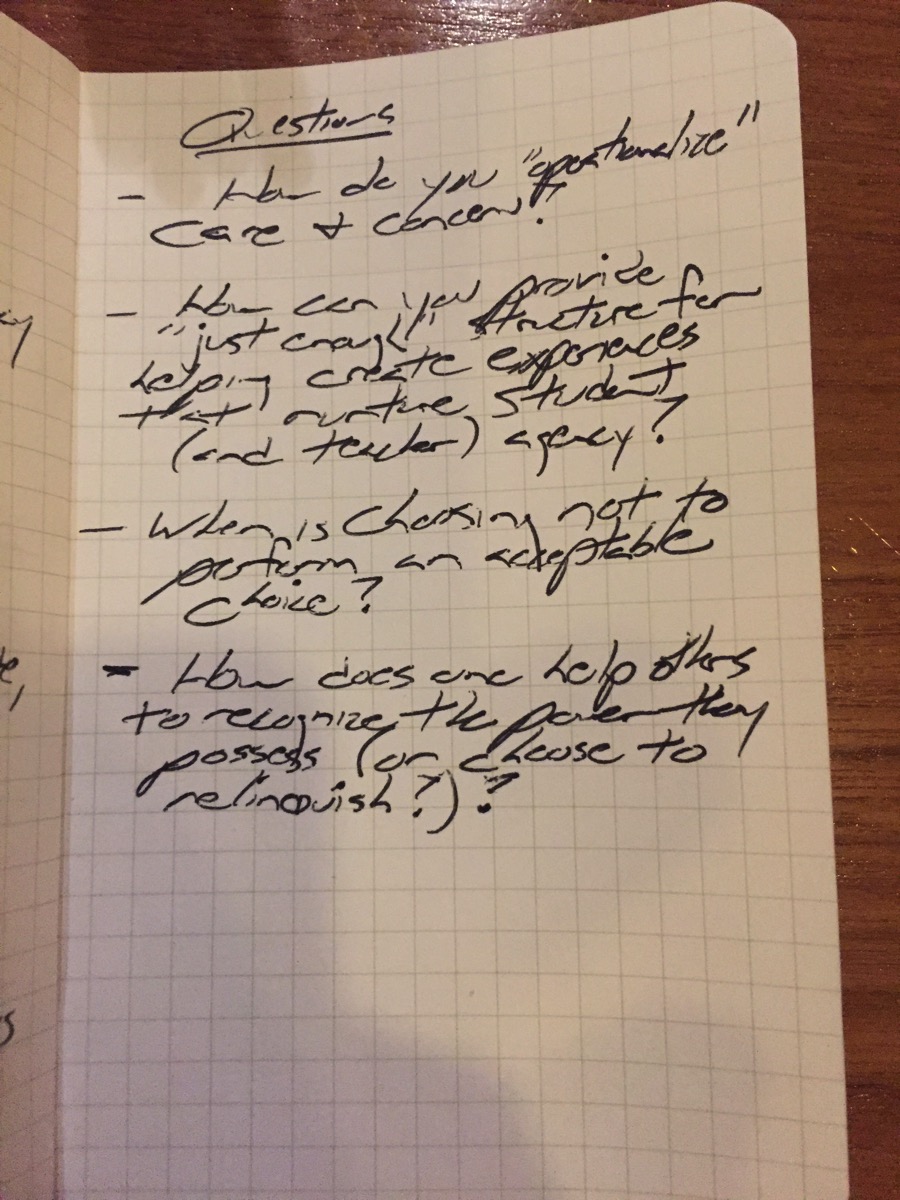 Questions
- How do you "operationalize"
care & concern?
- How can you provide
"just enough" structure for
helping create experiences
that nurture student
(and teacher) agency?
- When is choosing not to
perform an acceptable
choice?
- How does one help others
to recognize the power they
possess (or choose to
relinquish?)?